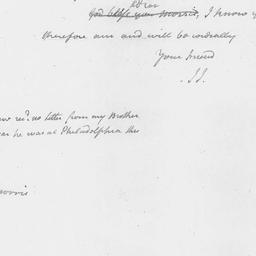 dren
God bless your Morris, I know y
therefore am and will be cordially
Your friend
J.J.
recd. no Letter from my Brother
he was at Philadelphia this
orris